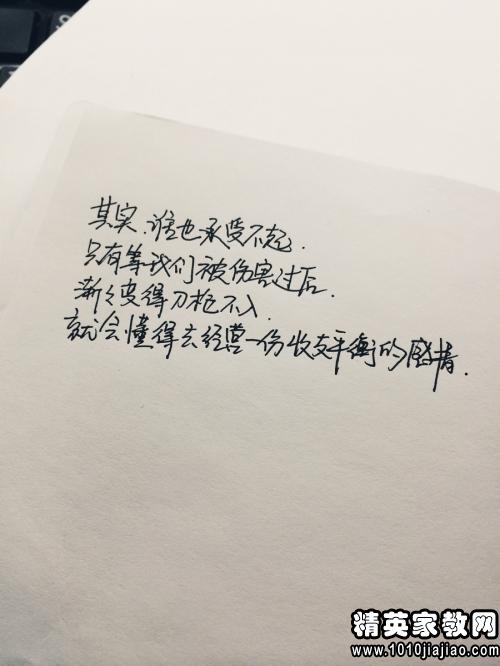 其实.谁也承受不起.
只有等我们被伤害过后.
渐渐变得刀枪不入.
就会懂得去经营一份收支平衡的感情.
精英家教网
www.1010jiajiao.com